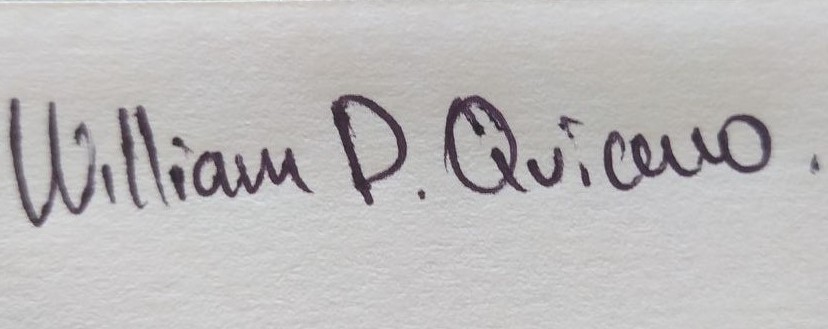 William D. Quiceno.